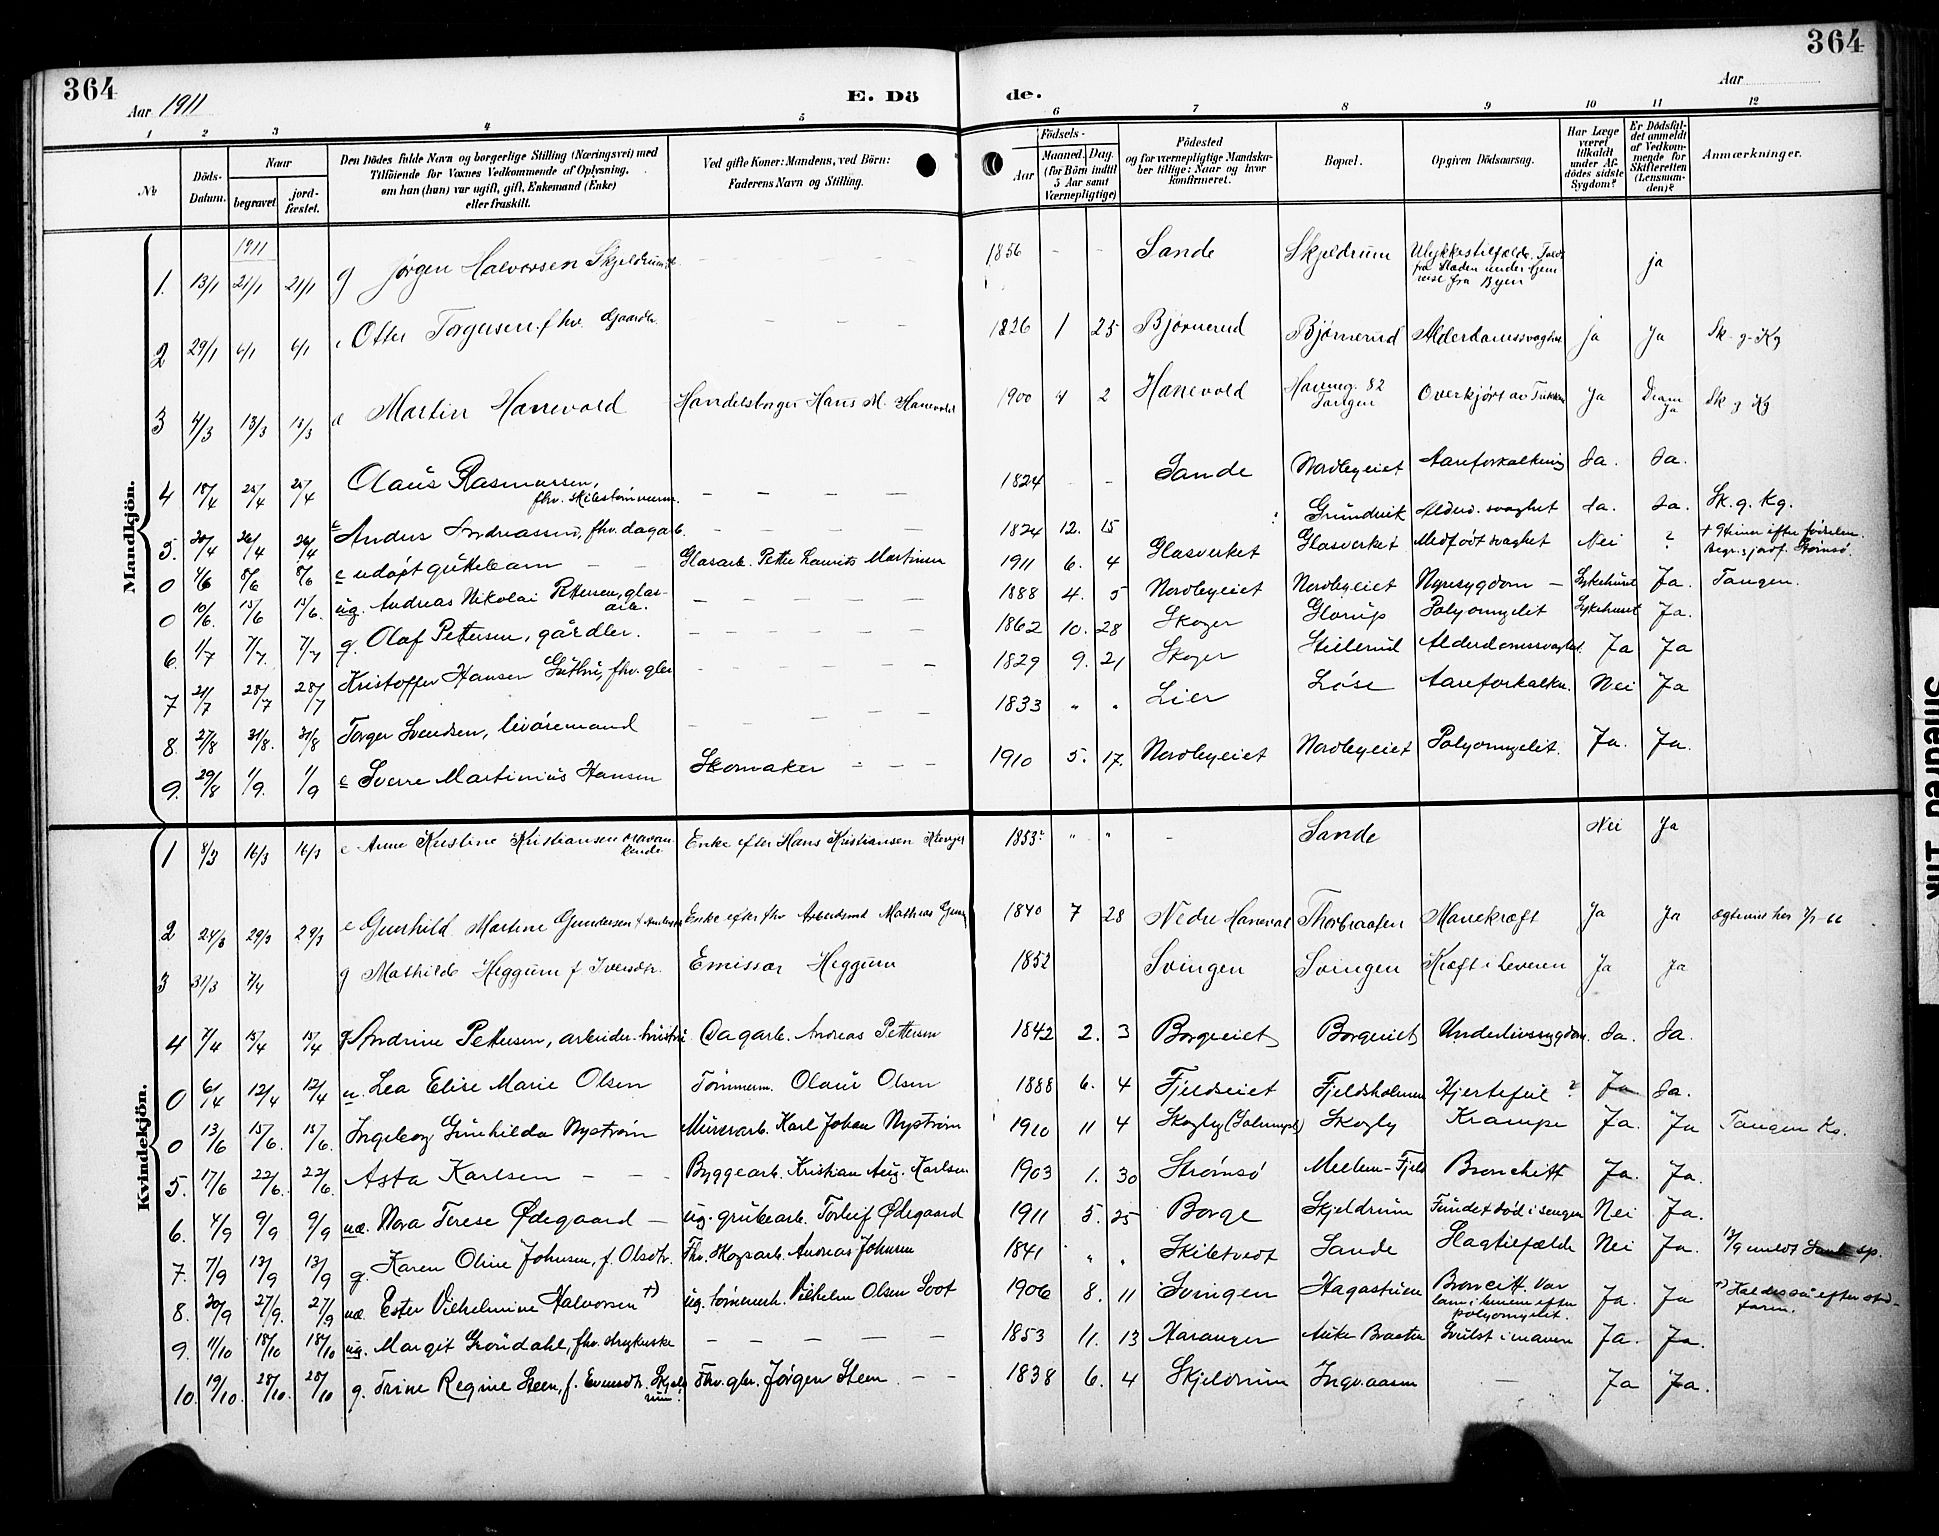 364
364
Aar 1911
E. Dö
de.
Aar
1 2 3 4 5 6 7 8 9 10 11 12
No
Döds-Datum.
Naar
begravet.
jordfæstet.
Den Dödes fulde Navn og borgerlige Stilling (Næringsvei) med
Tilföiende for Voxnes Vedkommende af Oplysning,
om han (hun) var ugift, gift, Enkemand (Enke)
eller fraskilt.
Ved gifte Koner: Mandens, ved Börn:
Faderens Navn og Stilling.
Födsels-
Aar
Maaned. Dag.
(for Börn indtil
5 Aar samt
Værnepligtige)
Födested
og for værnepligtige Mandskaber tillige: Naar og hvor
konfirmeret.
Bopæl.
Opgiven Dödsaarsag.
Har Læge
været
tilkaldt
under Afdödes sidste
Sygdom?
Er Dödsfaldet anmeldt
af Vedkommende for
Skifteretten
(Lensmanden)?
Anmærkninger.
Mandkjön.
1911
1. 13/1 21/1 21/1 g Jørgen Halvorsen Skjeldrum 1856 Sande Skjeldrum Ulykkestilfælde. Faldt fra Sladen under hjemreise fra Byen ja
2 29/1 6/1 6/1 Otter Torgersen fhv. Gaardbr. 1826 1 25 Bjørnerud Bjørnerud Alderdomssvaghet ja ja Sk. g. Kg
3 4/3 13/3 13/3 Martin Hanevold Handelsborger Hans M. Hanevold 1900 4 2 Hanevold Havneg. 82 Tangen Overkjørt av Trikken Ja Dram Ja Sk g Kg
4 18/4 25/4 25/4 Olaus Rasmussen, fhv. skibstømmerm. 1824 Sande Nordbyeiet Aareforkalkning Ja. Ja.
5. 20/4 26/4 26/4 e Anders Andreassen, fhv. dagarb. 1824 12. 15 Grundvik Alderd. svaghet Ja. Ja. Sk. g. Kg.
0 4/6 8/6 8/6 e udøpt guttebarn Glasarb. Petter Laurits Martinsen 1911 6. 4 Glasverket Glasverket Medfødt svaghet Nei ? † 9 timer efter fødselen. Begr. i jordf. Strømsø.
0 10/6. 15/6 15/6. ug. Andreas Nikolai Pettersen, glasarb. 1888 4. 5 Nordbyeiet Nordbyeiet Nyresygdom Sykehuset Ja. Tangen.
6. 1/7 7/7. 7/7 g. Olaf Pettersen, gårdbr. 1862 10. 28 Skoger Glorup Polyomyelit Sykehuset Ja.
7 21/7 28/7 28/7 Kristoffer Hansen Guthu, fhv. gbr 1829 9. 21 Skoger Stillerud Alderdomssvaghet Ja Ja
8. 27/8 31/8. 31/8 Torger Svendsen, livøremand 1833 " " Lier Løse Aareforkalkn. Nei Ja
9. 29/8 1/9. 1/9 e Sverre Martinius Hansen Skomaker 1910 5. 17. Nordbyeiet Nordbyeiet Polyomyelit. Ja. Ja.
Kvindekjön.
1 8/3 16/3 16/3 e Anne Kristine Kristiansen Enke efter Hans Kristiansen 1853 " " Sande Nei Ja
2 24/3 29/3 29/3 e Gunhild Martine Gundersen f. Andersen Enke efter fhv Arbeidsmd Mathias 1840 7 28 Nedre Hanevold Thorbraaten Mavekræft Ja Ja
3 31/3 7/4 g Mathilde Heggum f Iversdtr. Emissær Heggum 1852 Svingen Svingen Kræft i Leveren Ja Ja
4 7/4 15/4 15/4 g Andrine Pettersen, arbeider-hustru Dagarb. Andreas Pettersen 1842 2. 3 Borgeeiet Borgeeiet Underlivssygdom. Ja. Ja.
0 6/4 12/4 12/4 u. Lea Elise Marie Olsen Tømmerm. Olaus Olsen 1888 6. 4 Fjeldseiet Fjeldsholmen Hjertefeil ? Ja Ja.
0 13/6 15/6. 15/6. Ingeborg Gunhilda Nystrøm Murerarb. Karl Johan Nystrøm 1910 11 4 Skogly Skogly Krampe Ja. Ja Tangen Ks.
5. 17/6 22/6. 22/6. Asta Karlsen Byggearb. Kristian Aug. Karlsen 1903 1. 30 Strømsø Mellem-Fjeld Bronchitt Ja. Ja.
6. 4/9 9/9 9/9 uæ. Nora Terese Ødegaard ug. grubearb. Torleif Ødegaard 1911 5. 25 Borge Skjeldrum Fundet død i sengen Nei Ja.
7. 7/9 13/9 13/9 g. Karen Oline Johnsen, f. Olsdtr. Fhv. skogsarb. Andreas Johnsen 1841 " " Skibtvedt Sande Slagtilfælde Nei Ja. 13/9 meldt
8. 20/9 27/9. 27/9 uæ. Ester Vilhelmine Halvorsen †) ug. tømmerh. Vilhelm Olsen Svot 1906 8. 11 Svingen Hagastuen Broncitt. Var lam i benene efter polyomyelit. Ja. Ja †) Kaldes su efter stedfaren.
9. 11/10 18/10 18/10 ug. Margit Grøndahl, fhv. strykerske 1853 11. 13 Haranger Auke Braaten Svulst i maven Ja. Ja.
10. 19/10. 28/10. 28/10 g. Trine Regine Steen, f. Evensdtr. Skjeldrum. Fhv. gbr. Jørgen Steen 1838 6. 4 Skjeldrum Ingv.aasen Ja Ja.